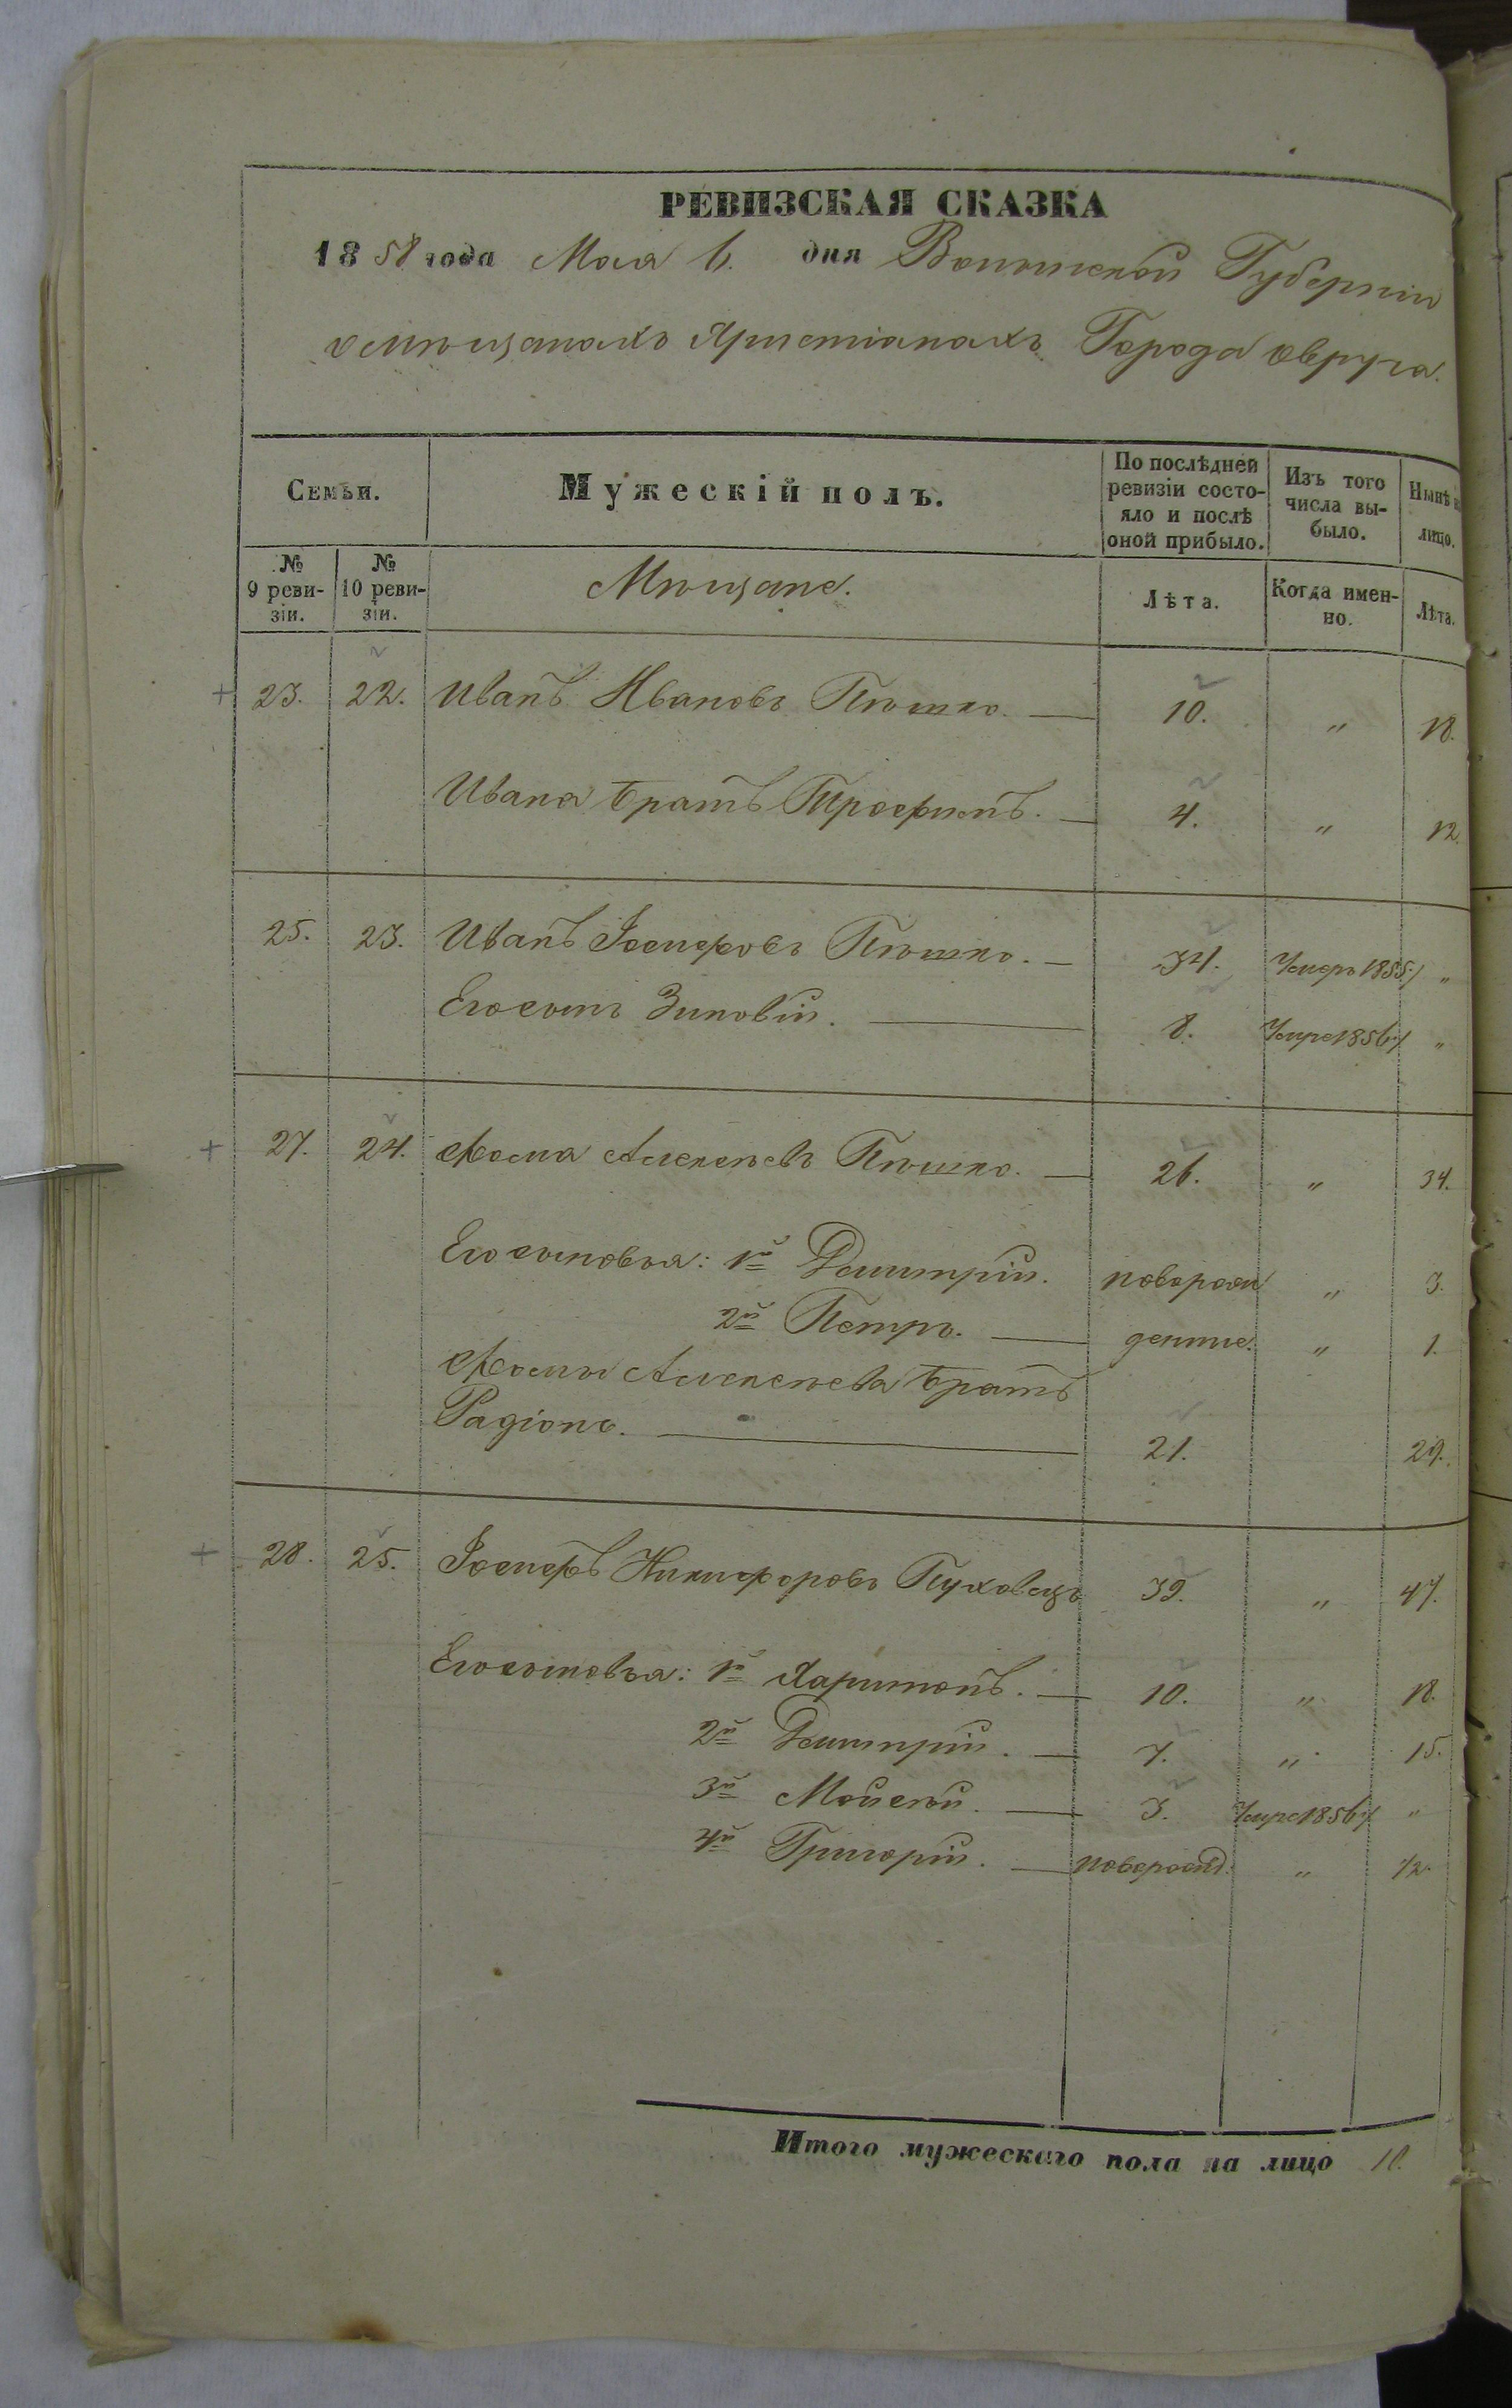 РЕВИЗСКАЯ СКАЗКА
1858 года Мая 6. дня Волынской Губернии
о мѣщанахъ Христіанахъ Города Овруча.
Семьи.
Мужескій полъ.
По послѣдней ревизіи состо-
яло и послѣ
оной прибыло.
Изъ того
числа вы-
было.
Нынѣ
лицо.
№
9 реви-
зіи.
№
10 реви-
зіи.
Мѣщане.
Лѣта.
Когда имен-
но.
Лѣта.
23. 22. Иванъ Ивановъ Пѣшко. — 10. „ 18.
Ивана братъ Трофимъ. — 4. „ 12.
25. 23. Иванъ Іосифовъ Пѣшко. — 34. Умеръ 1855 „
Его сынъ Зиновій. — 8. Умре 1856 „
27. 24. Фома Алексѣевъ Пѣшко. — 26. „ 34.
Его сыновья: 1й Дмитрій. новорож „ 3.
2й Петръ. — денные. „ 1.
Фомы Алексѣева братъ
Радіонъ. — 21. 29.
28. 25. Іосифъ Никифоровъ Пуховецъ 39. „ 47.
Его сыновья: 1й Харитонъ. — 10. „ 18.
2й Дмитрій. — 7. „ 15.
3й Мойсей. — 3. Умре 1856 „
4й Григорій. — новорожд. „ 1/2
Итого мужескаго пола на лицо 10.